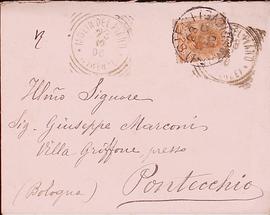 Illmo Signore
Sig. Giuseppe Marconi
Villa Griffone presso
(Bologna) Pontecchio